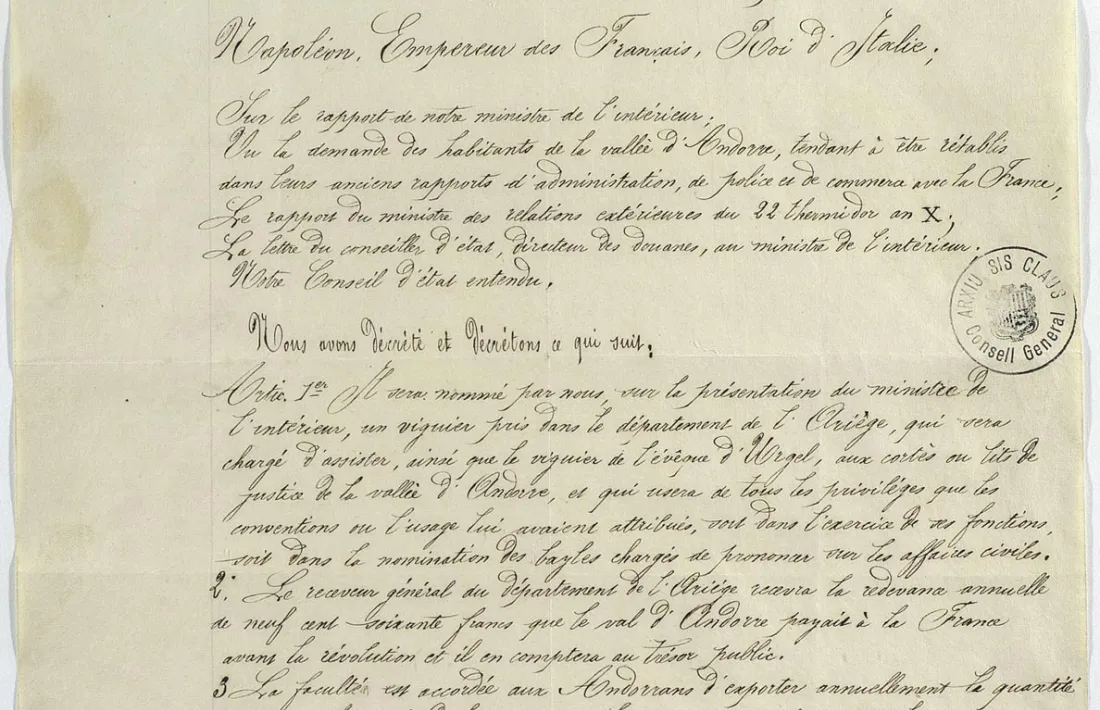 Napoléon, Empereur des Français, Roi d'Italie;
Sur le rapport de notre ministre de l'intérieur;
Vu la demande des habitants de la vallée d'Andorre, tendant à être rétablis
dans leurs anciens rapports d'administration, de police et de commerce avec la France;
Le rapport du ministre des relations extérieures du 22 thermidor an X;
La lettre du conseiller d'état, directeur des douanes, au ministre de l'intérieur.
Notre Conseil d'état entendu.
ARXIU SIS CLAUS
Consell General
Nous avons décrété et décrétons ce qui suit:
Artic. 1er Il sera nommé par nous, sur la présentation du ministre de
l'intérieur, un viguier pris dans le département de l'Ariège, qui sera
chargé d'assister, ainsi que le viguier de l'évêque d'Urgel, aux cortès ou lits de
justice de la vallée d'Andorre, et qui usera de tous les priviléges que les
conventions ou l'usage lui avaient attribués, soit dans l'exercice de ses fonctions,
soit dans la nomination des bayles chargés de prononcer sur les affaires civiles.
2. Le receveur général du département de l'Ariége recevra la redevance annuelle
de neuf cent soixante francs que le val d'Andorre payait à la France
avant la révolution et il en comptera au trésor public.
3 La faculté est accordée aux Andorrans d'exporter annuellement la quantité